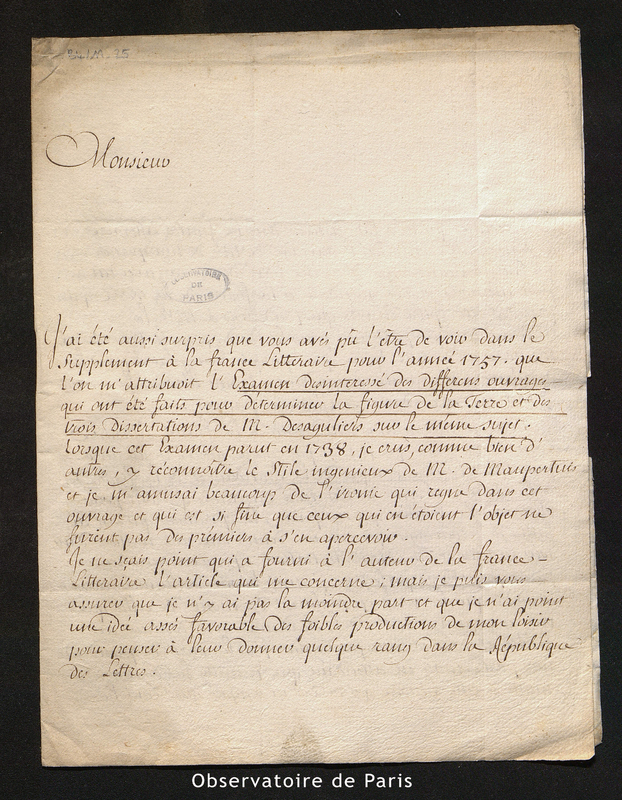 Monsieur
OBSERVATOIRE
DE
PARIS
J'ai été aussi surpris que vous avés pû l'être de voir dans le
Supplement à la france Litteraire pour l'année 1757. que
l'on m'attribuoit l'Examen desinteressé des differens ouvrages
qui ont été faits pour determiner la figure de la Terre et des
trois dissertations de M. Desaguliers sur le même sujet.
lorsque cet Examen parut en 1738, je crus, comme bien d'
autres, y réconnoître le Stile ingenieux de M. de Maupertuis
et je m'amusai beaucoup de l'ironie qui regne dans cet
ouvrage et qui est si fine que ceux qui en étoient l'objet ne
furent pas des prémiers à s'en apercevoir.
Je ne sçais point qui a fourni à l'auteur de la france-
Litteraire l'article qui me concerne; mais je puis vous
assurer que je n'y ai pas la moindre part et que je n'ai point
une idée assés favorable des foibles productions de mon loisir
pour penser à leur donner quelque rang dans la République
des Lettres.
Observatoire de Paris